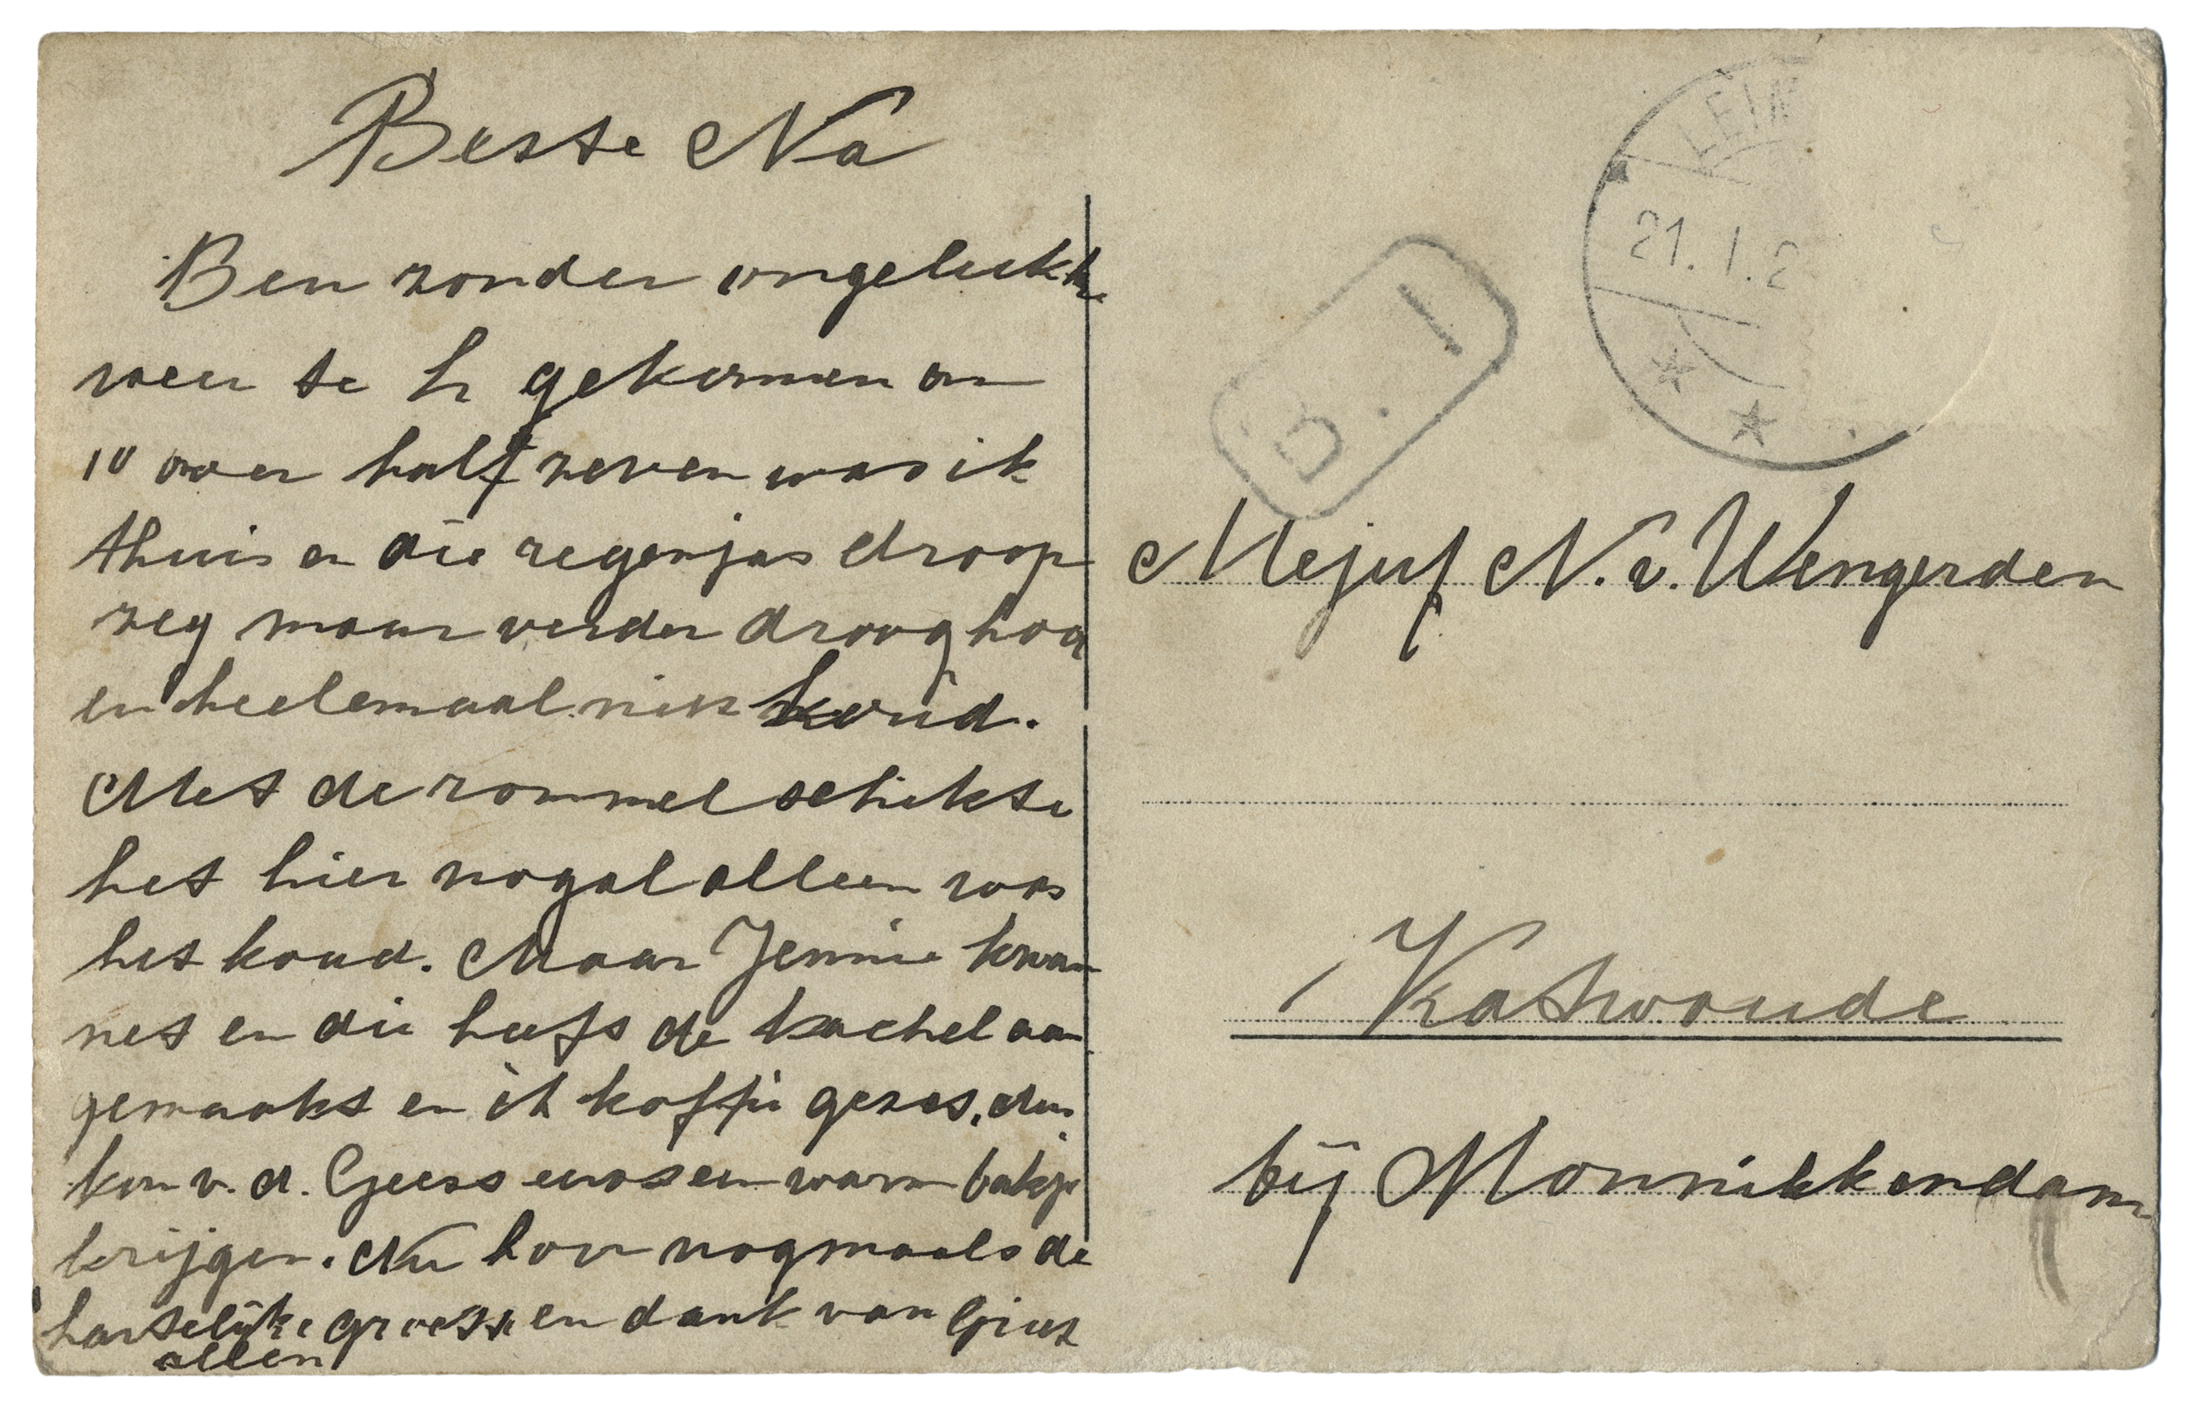 Beste Na
Ben zonder ongelukke
weer te h gekomen om
10 over half zeven was ik
thuis en die regenjas droop
zeg maar verder droog hoor
en heelemaal niet koud.
Met de rommel schikte
het hier nogal alleen was
het koud. Maar Jennie kwam
net en die heeft de kachel aan
gemaakt en ik koffie gezet, dus
kon v.d. Geest eens een warm bakje
krijgen. Nu hoor nogmaals de
hartelijke groeten en dank van Giet
allen
LEIM
21.1.2
B.I
Mejuf N. v. Wengerden
Katwoude
bij Monnikkendam